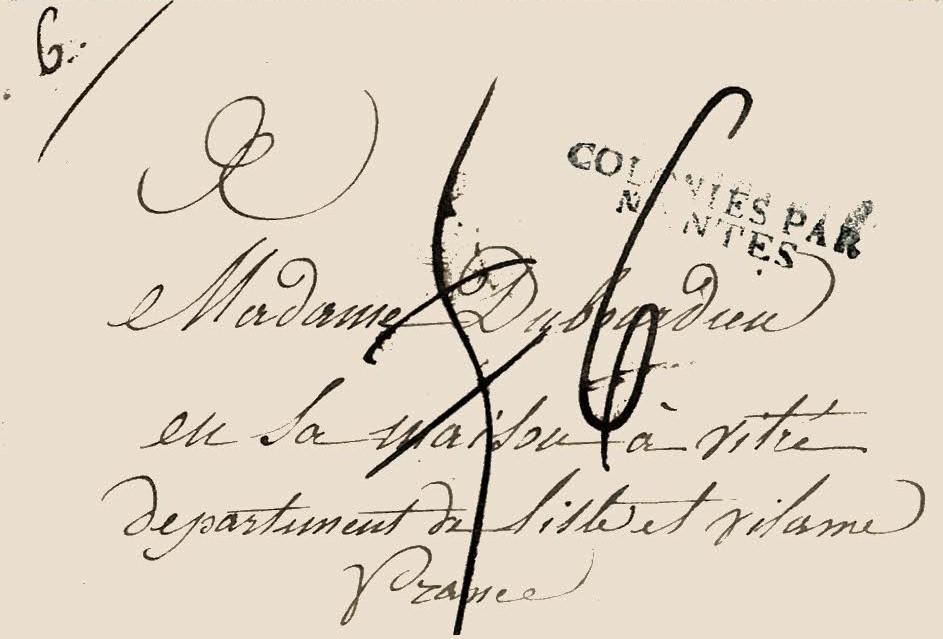 6.
A
COLONIES PAR
NANTES
6
Madame Duboardieu
en sa maison à vitré
departement de lille et vilaine
France